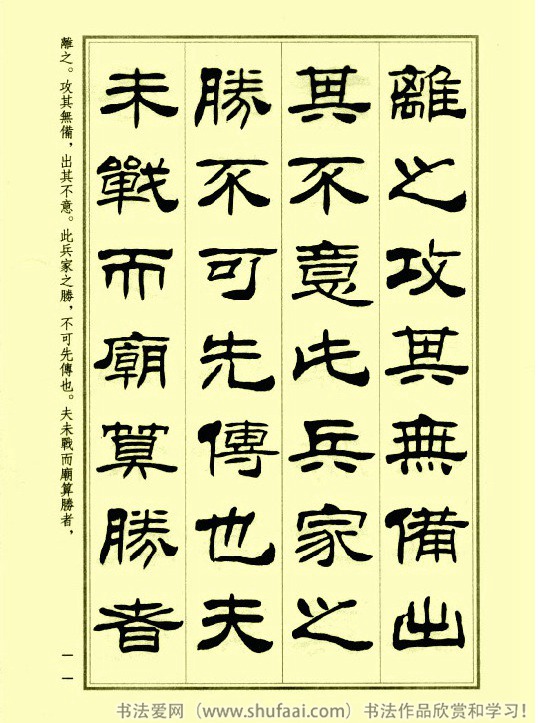 離之攻其無備出
其不意此兵家之
勝不可先傳也夫
未戰而廟算勝者
離之。攻其無備，出其不意。此兵家之勝，不可先傳也。夫未戰而廟算勝者，
一一
书法爱网（www.shufaai.com）书法作品欣赏和学习！